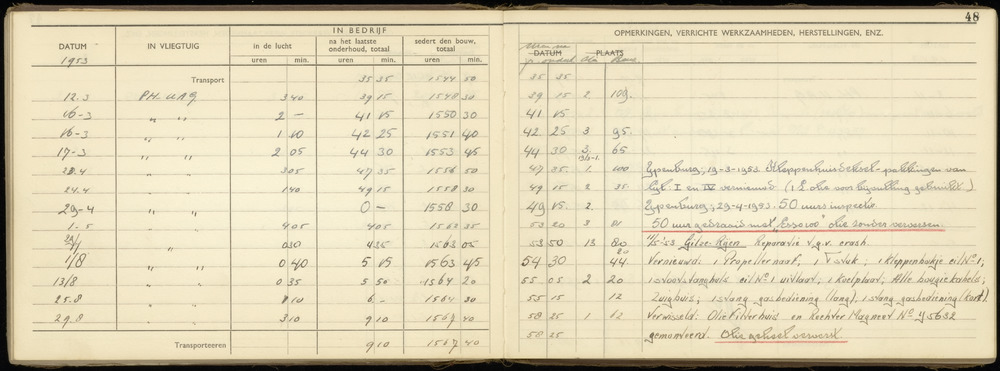 48
IN BEDRIJF
OPMERKINGEN, VERRICHTE WERKZAAMHEDEN, HERSTELLINGEN, ENZ.
DATUM IN VLIEGTUIG in de lucht na het laatste onderhoud, totaal sedert den bouw, totaal DATUM PLAATS
1953 uren min. uren min. uren min.
Transport 35 35 1544 50 35 35
12.3 PH. UAG 3 40 39 15 1548 30 39 15 2 109.
16-3 " " 2 - 41 15 1550 30 41 15
16-3 " " 1 10 42 25 1551 40 42 25 3 95.
17-3 " " 2 05 44 30 1553 45 44 30 3. 65
22.4 " " 3 05 47 35 1556 50 47 35 1. 100 Ypenburg, 19-3-1953. Kleppenhuisdeksel-pakkingen van
24.4 " " 1 40 49 15 1558 30 49 15 2 35. cyl. I en IV vernieuwd (1 L olie voor bijvulling gebruikt).
29-4 " " 0 - 1558 30 49 15 2. Ypenburg, 29-4-1953. 50 uurs inspectie.
1-5 " " 4 05 4 05 1562 35 53 20 3 81 50 uur gedraaid met "Essolub" olie zonder verversen.
0 30 4 35 1563 05 53 50 13 80 11/5-'53 Gilze-Rijen Reparatie t.g.v. crash.
1/8 " " 0 40 5 15 1563 45 54 30 44 Vernieuwd: 1 Propellernaaf, 1 T stuk, 1 kleppenbakje cil No 1;
13/8 " " 0 35 5 50 1564 20 55 05 2 20 1 stootstanghuis cil No 1 uitlaat; 1 Koelplaat; Alle bougiekabels;
25.8 " " 0 10 6 - 1564 30 55 15 12 Zuighuis, 1 stang gasbediening (lang), 1 stang gasbediening (kort).
29.8 " " 3 10 9 10 1567 40 58 25 1 82 Verwisseld: Oliefilterhuis en Rechter Magneet No 45632
Transporteeren 9 10 1567 40 58 25 gemonteerd. Olie geheel ververst.